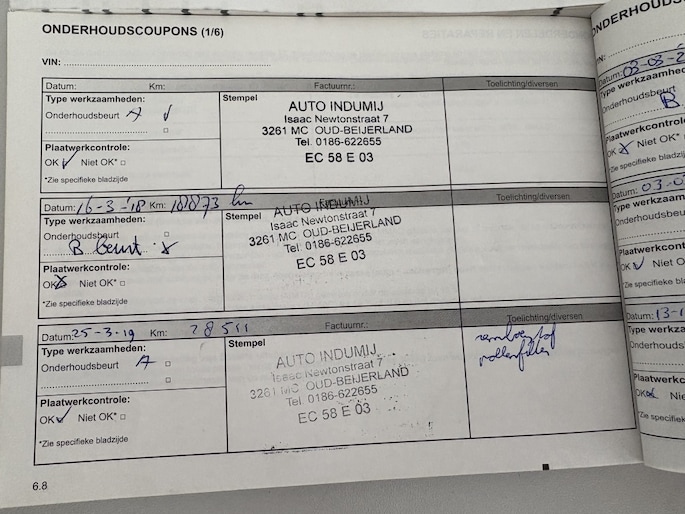 ONDERHOUDSCOUPONS (1/6)
VIN:
Datum: Km: Factuurnr.: Toelichting/diversen
Type werkzaamheden:
Onderhoudsbeurt A
Plaatwerkcontrole:
OK Niet OK*
*Zie specifieke bladzijde
Stempel
AUTO INDUMIJ
Isaac Newtonstraat 7
3261 MC OUD-BEIJERLAND
Tel. 0186-622655
EC 58 E 03
Datum: 16-3-'18 Km: 18873 km Toelichting/diversen
Type werkzaamheden:
Onderhoudsbeurt
B beurt x
Plaatwerkcontrole:
OK Niet OK*
*Zie specifieke bladzijde
Stempel
AUTO INDUMIJ
Isaac Newtonstraat 7
3261 MC OUD-BEIJERLAND
Tel. 0186-622655
EC 58 E 03
Datum: 25-3-19 Km: 28511 Factuurnr.: Toelichting/diversen
Type werkzaamheden:
Onderhoudsbeurt A
Plaatwerkcontrole:
OK Niet OK*
*Zie specifieke bladzijde
Stempel
AUTO INDUMIJ
Isaac Newtonstraat 7
3261 MC OUD-BEIJERLAND
Tel. 0186-622655
EC 58 E 03
remvloeistof
pollenfilter
6.8
Datum: 03-03-2
Type werkzaamhede
Onderhoudsbeurt
B.
Plaatwerkcontrole
OK Niet OK*
*Zie specifieke
Datum: 03-0
Type werkzaam
Onderhoudsb
Plaatwerkcont
OK Niet O
*Zie specifieke
Datum: 13-1
Type werkza
Onderhouds
Plaatwerkc
OK Niet
*Zie specifie